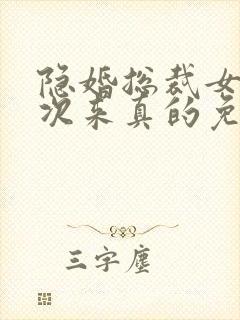 隐婚总裁女
次来真的免
三字尘